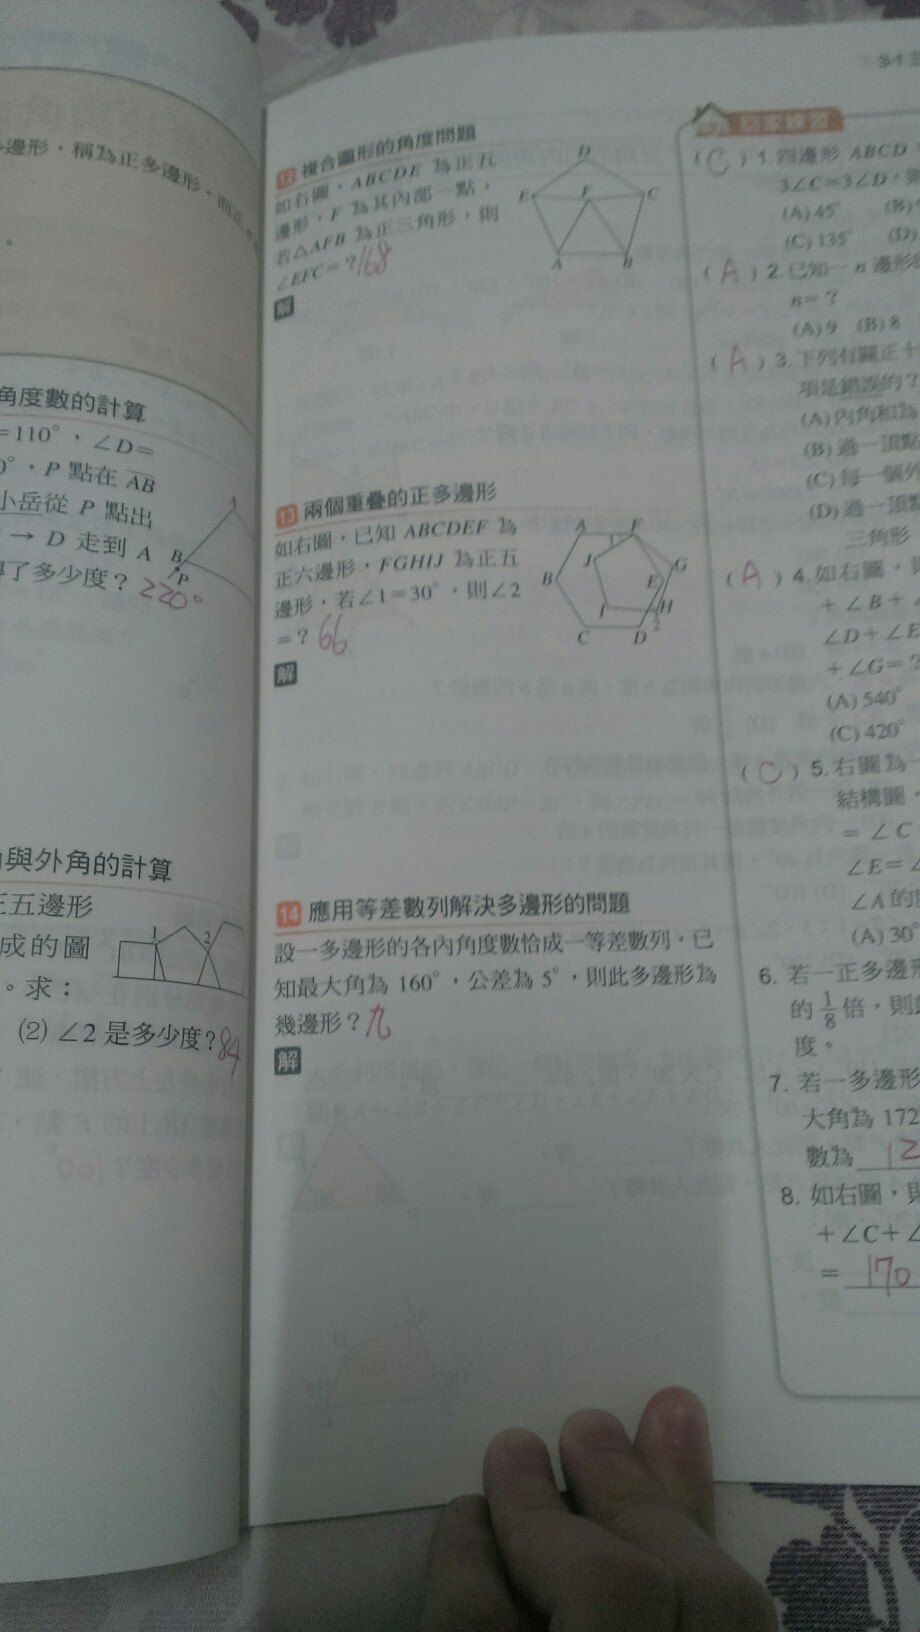 多邊形，稱為正多邊形。而正
角度數的計算
=110°，∠D=
0°，P 點在 AB
小岳從 P 點出
→ D 走到 A
了多少度？220°
B
P
與外角的計算
正五邊形
成的圖
。求：
1
2
(2) ∠2 是多少度？84
12 複合圖形的角度問題
如右圖，ABCDE 為正五
邊形，F 為其內部一點，
若△AFB 為正三角形，則
∠EFC=？168
解
D
E
F
C
A
B
13 兩個重疊的正多邊形
如右圖，已知 ABCDEF 為
正六邊形，FGHIJ 為正五
邊形，若∠1=30°，則∠2
=？66
解
A
F
J
G
B
E
I
H
2
C
D
14 應用等差數列解決多邊形的問題
設一多邊形的各內角度數恰成一等差數列，已
知最大角為 160°，公差為 5°，則此多邊形為
幾邊形？九
解
3-1
回家練習
(C) 1. 四邊形 ABCD
3∠C=3∠D，
(A) 45°
(C) 135° (D)
(A) 2. 已知一 n 邊形
n=？
(A) 9 (B) 8
(A) 3. 下列有關正十
項是錯誤的？
(A) 內角和為
(B) 過一頂點
(C) 每一個外
(D) 過一頂點
三角形
(A) 4. 如右圖，則
+∠B+∠
∠D+∠E
+∠G=？
(A) 540°
(C) 420°
(C) 5. 右圖為一
結構圖，
=∠C
∠E=∠
∠A 的度
(A) 30°
6. 若一正多邊形
的 1/8 倍，則此
度。
7. 若一多邊形
大角為 172
數為 12
8. 如右圖，則
+∠C+∠
= 170